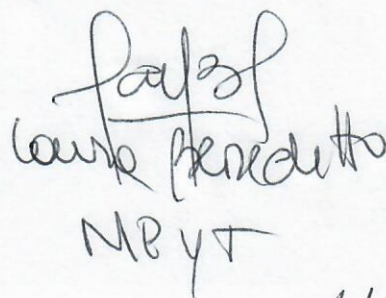 Laura Benedetto
MPyT